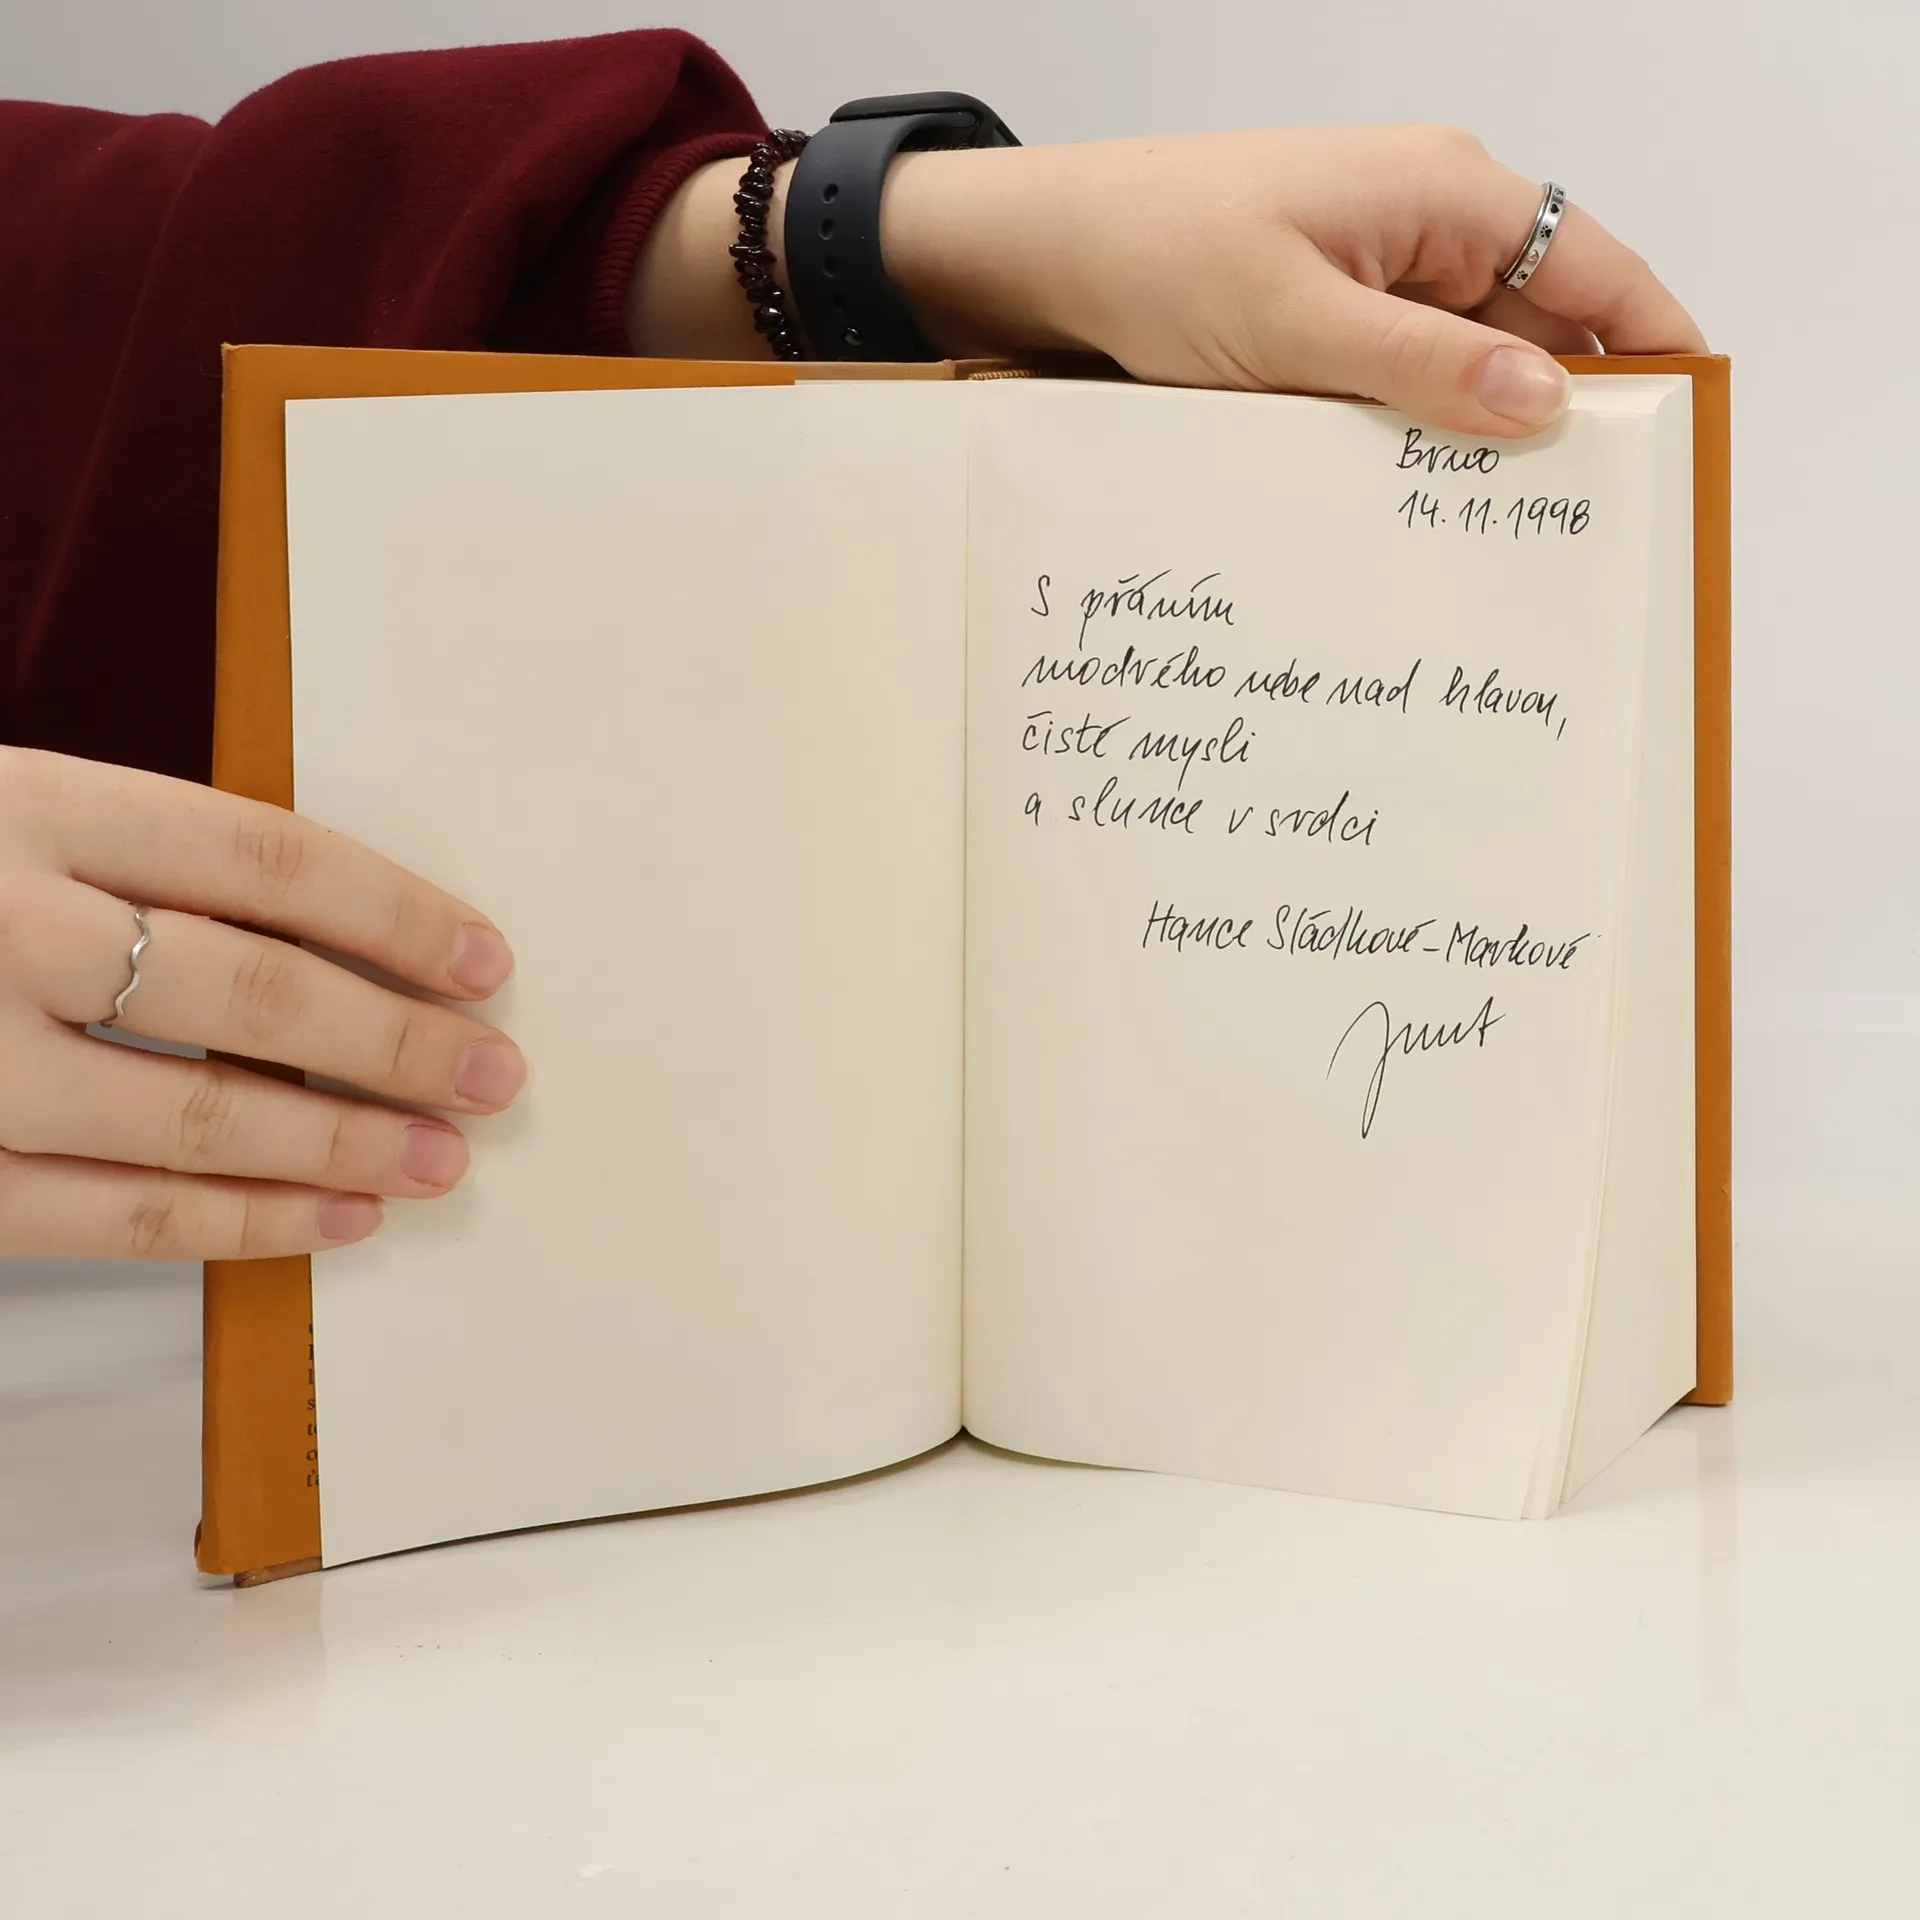 Brno
14.11.1998
S přáním
modrého nebe nad hlavou,
čisté mysli
a slunce v srdci
Hance Sládkové-Markové